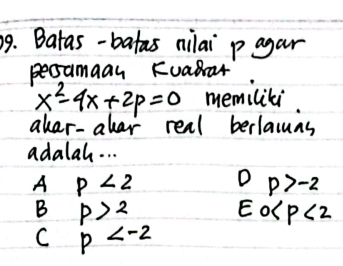 09. Batas - batas nilai p agar
persamaan kuadrat
x² - 4x + 2p = 0 memiliki
akar - akar real berlainan
adalah ...
A p < 2 D p > -2
B p > 2 E 0 < p < 2
C p < -2